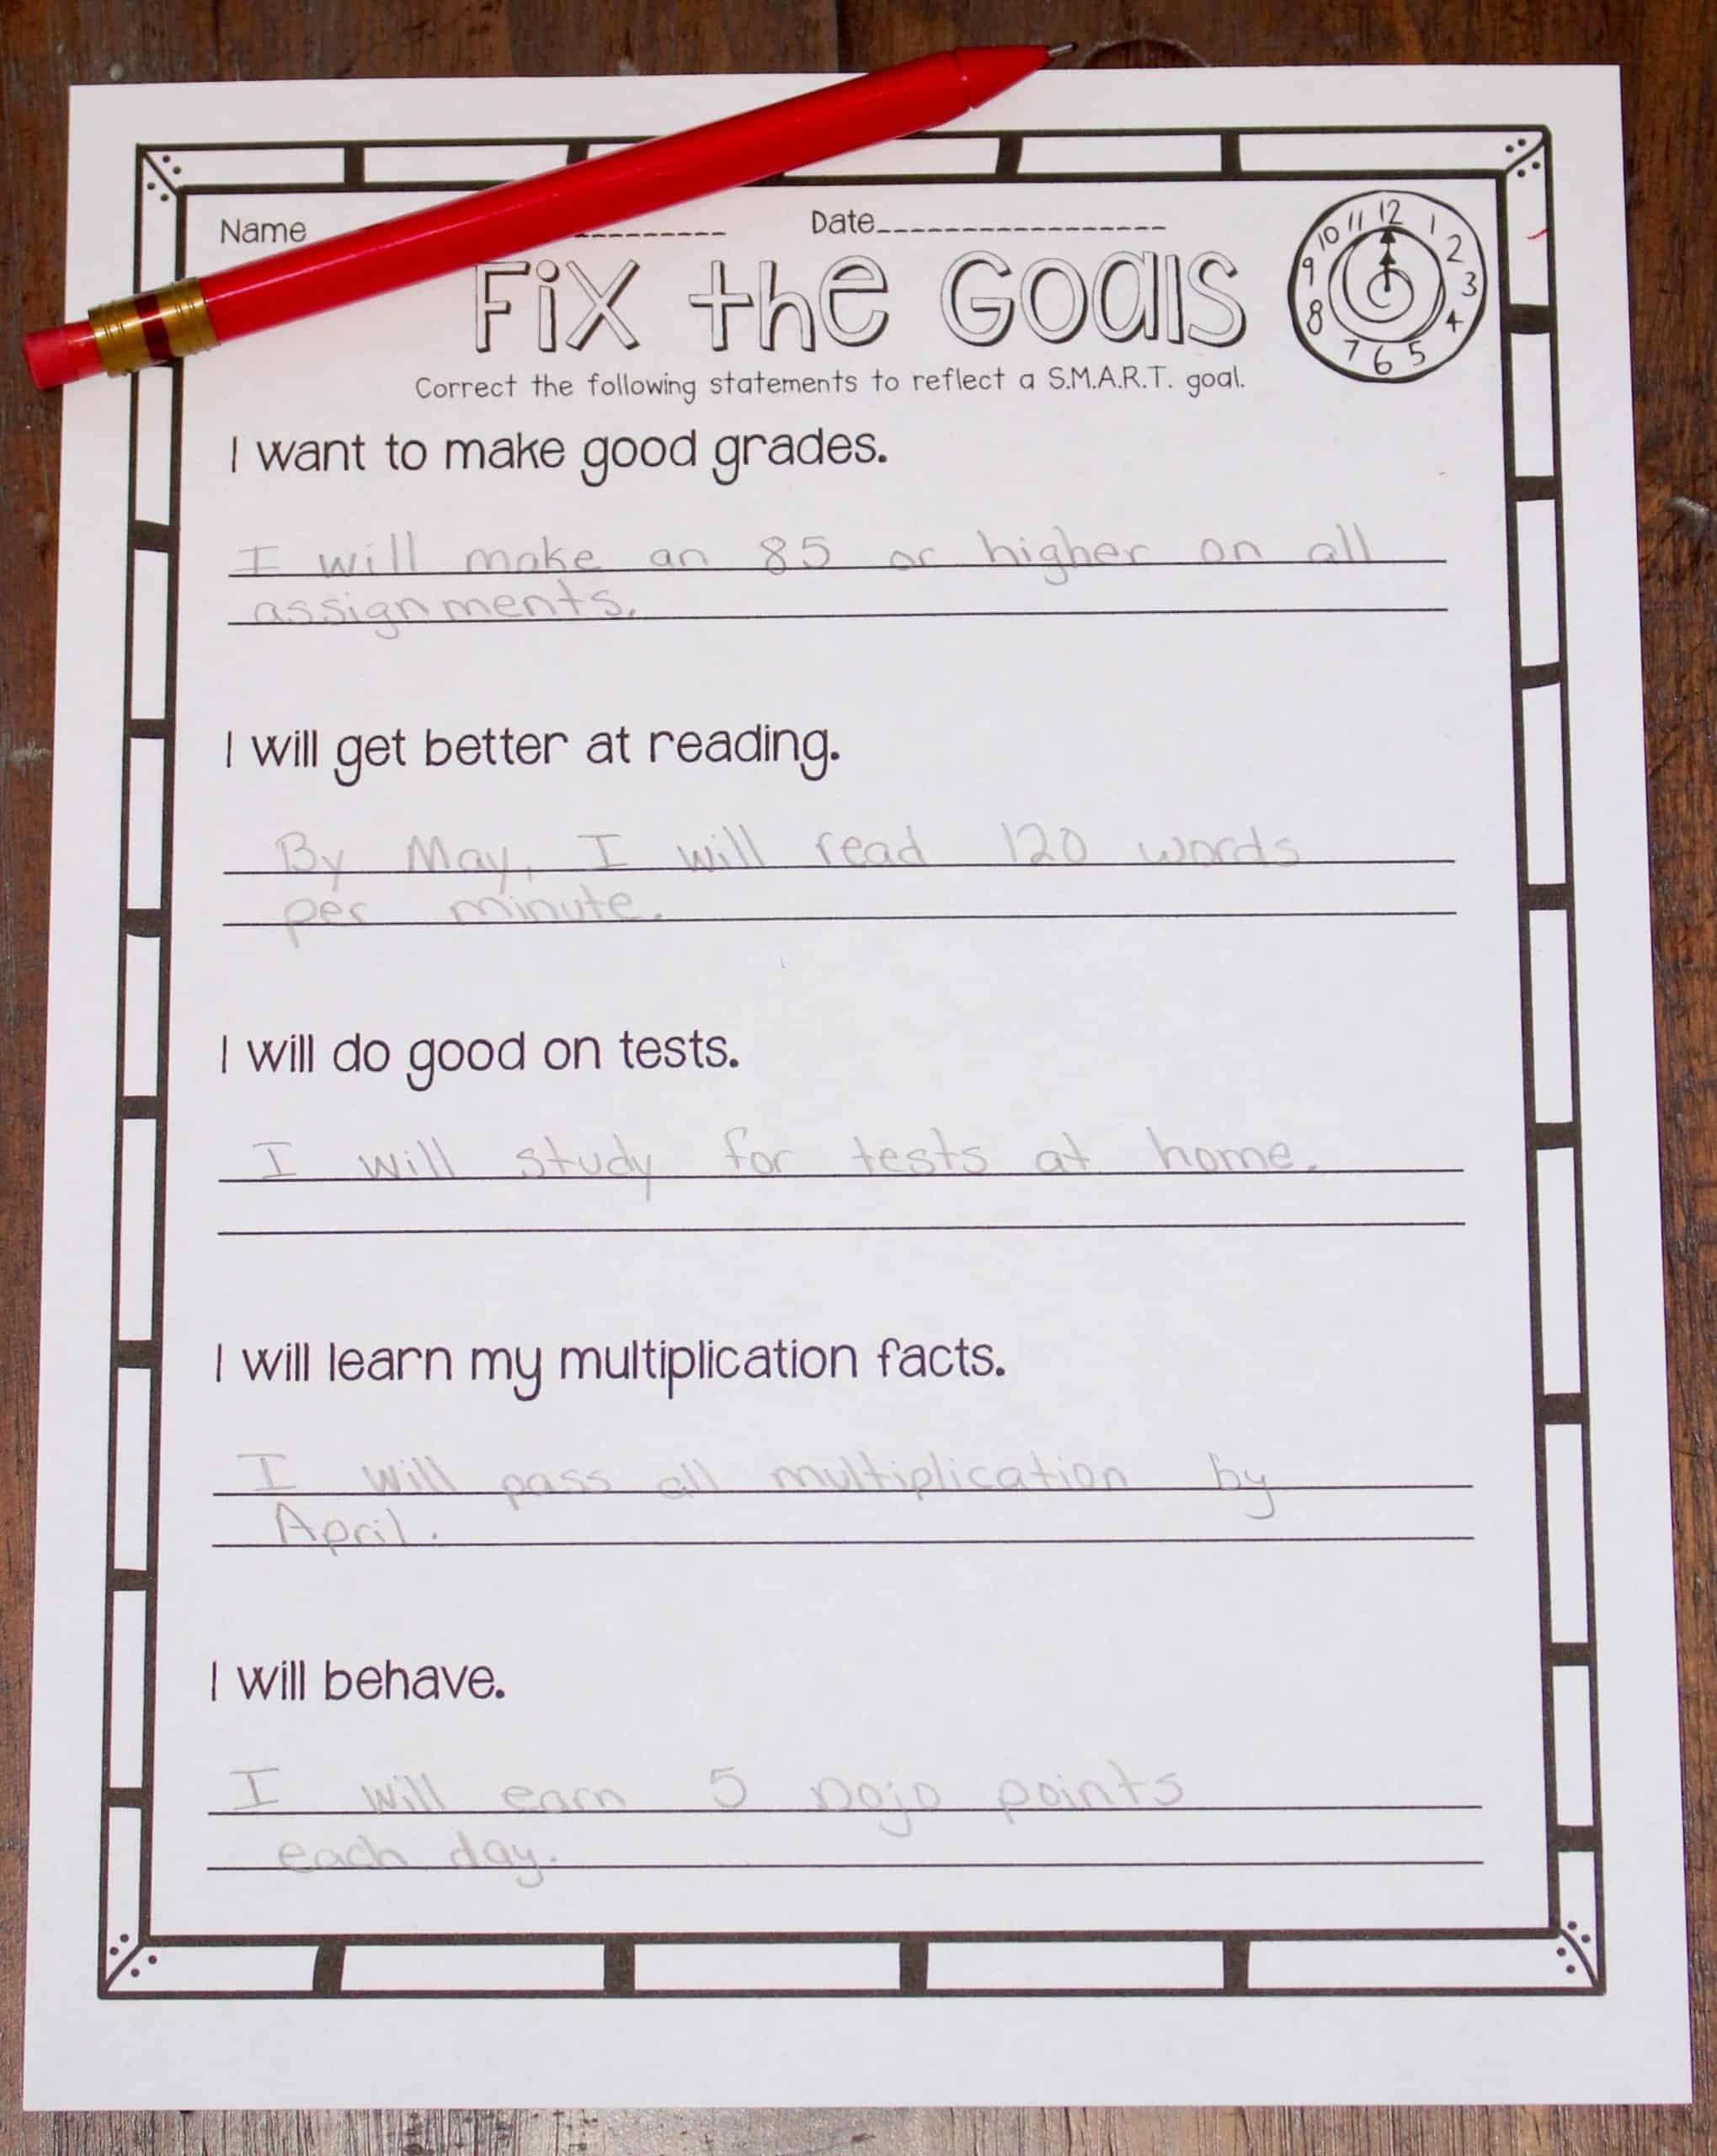 Name Date
Fix the Goals
12
1
2
3
4
5
6
7
8
9
10
11
Correct the following statements to reflect a S.M.A.R.T. goal.
I want to make good grades.
I will make an 85 or higher on all
assignments.
I will get better at reading.
By May, I will read 120 words
per minute.
I will do good on tests.
I will study for tests at home.
I will learn my multiplication facts.
I will pass all multiplication by
April.
I will behave.
I will earn 5 Dojo points
each day.